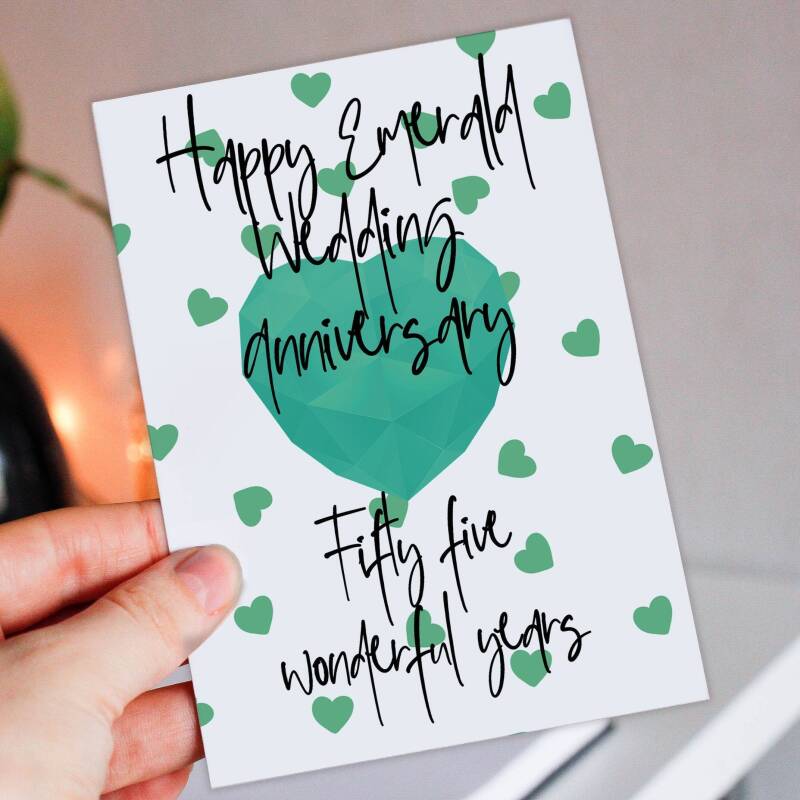 Happy Emerald
Wedding
anniversary
Fifty five
wonderful years